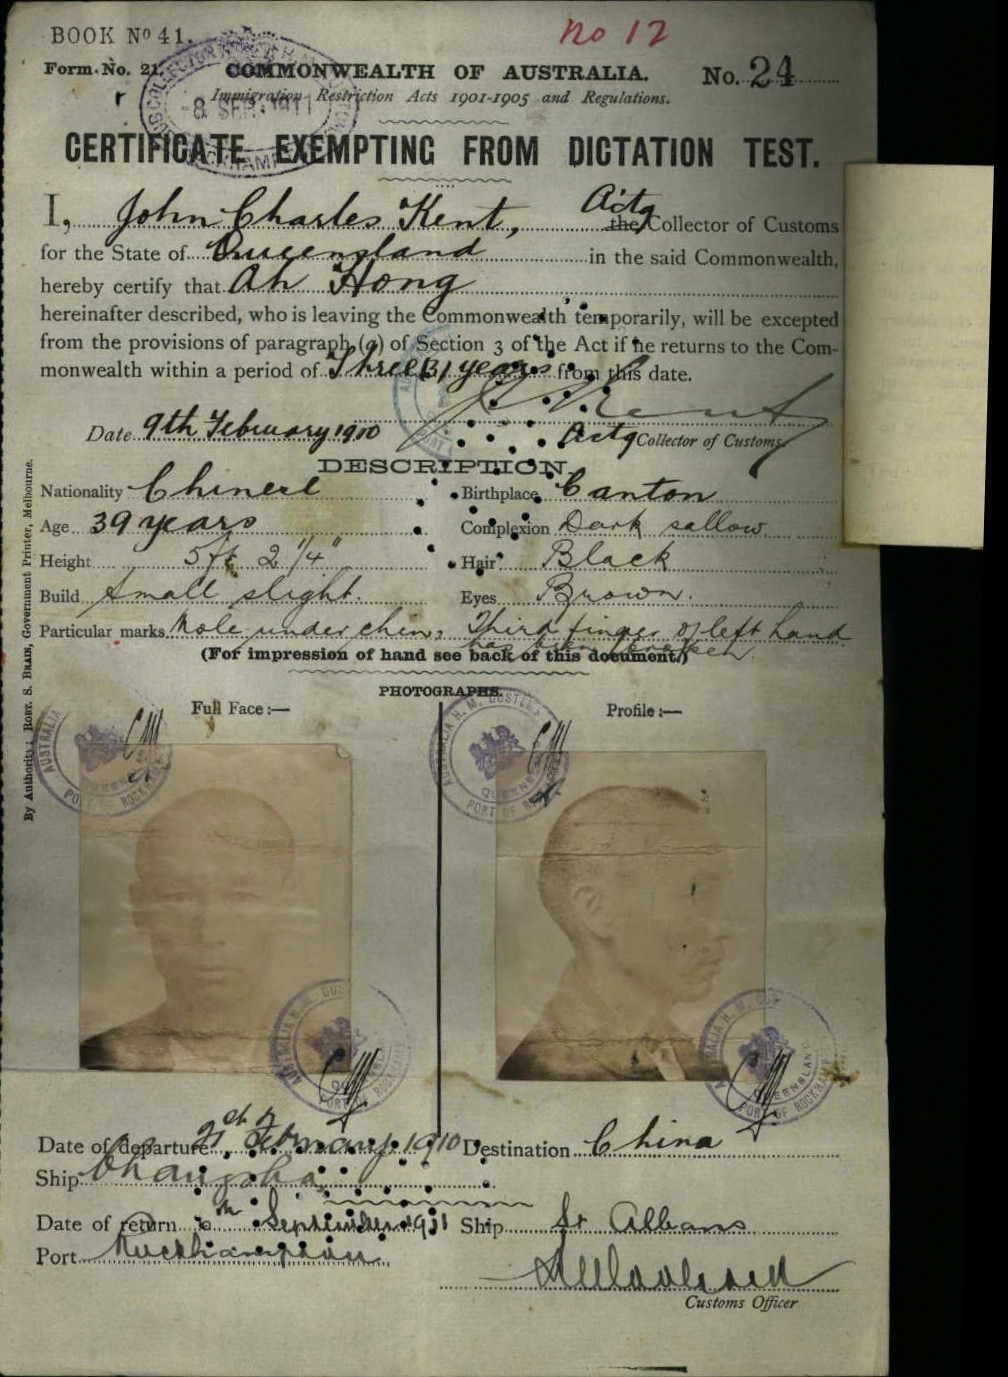 BOOK No 41.
No 12
Form No. 21.
COMMONWEALTH OF AUSTRALIA.
No. 24
Immigration Restriction Acts 1901-1905 and Regulations.
8 SEP. 1911
CERTIFICATE EXEMPTING FROM DICTATION TEST.
I, John Charles Kent, Actg the Collector of Customs
for the State of Queensland in the said Commonwealth,
hereby certify that Ah Hong
hereinafter described, who is leaving the Commonwealth temporarily, will be excepted
from the provisions of paragraph (a) of Section 3 of the Act if he returns to the Com-
monwealth within a period of Three (3) years from this date.
Date 9th February 1910
Actg Collector of Customs.
DESCRIPTION.
Nationality Chinese
Birthplace Canton
Age 39 years
Complexion Dark sallow
Height 5ft 2 1/4"
Hair Black
Build Small slight.
Eyes Brown.
Particular marks Mole under chin, Third finger of left hand
has been
(For impression of hand see back of this document.)
PHOTOGRAPHS.
Full Face :—
Profile :—
AUSTRALIA H. M. CUSTOMS
QUEENSLAND
PORT OF ROCKHAMPTON
By Authority: ROBT. S. BRAIN, Government Printer, Melbourne.
Date of departure 21st February 1910
Destination China
Ship Changsha
Date of return September 1911
Ship St Albans
Port Rockhampton
Customs Officer